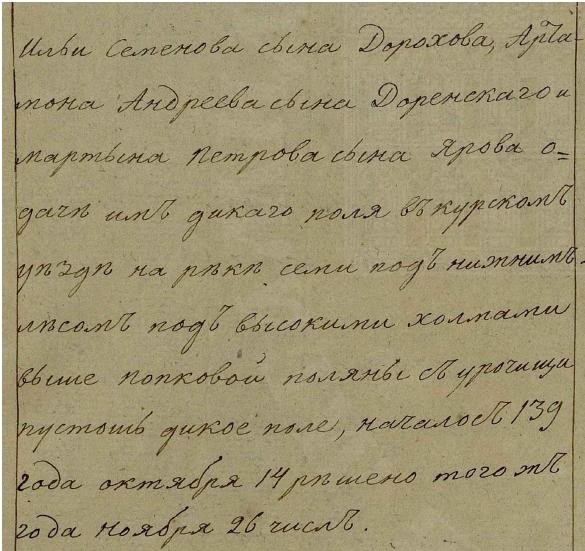 Ильи Семенова сына Дорохова, Арта-
мона Андреева сына Доренскаго и
мартына петрова сына Ярова о=
дачѣ имъ дикаго поля въ курскомъ
уѣздѣ на рѣкѣ семи подъ нижнимъ-
лѣсомъ подъ высокими холмами
выше попковой поляны съ урочищи
пустошь дикое поле, началосъ 139
года октября 14 рѣшено того жъ
года ноября 26 числъ.